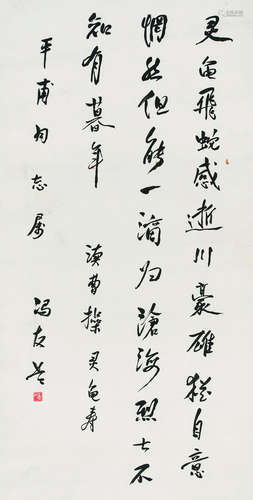 灵龟飞蛇感逝川豪雄犹自意
惘然但能一滴归沧海烈士不
知有暮年 读曹操灵龟寿
平甫同志属
冯友兰